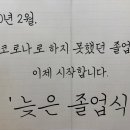 0년 2월.
코로나로 하지 못했던 졸업
이제 시작합니다.
'늦은 졸업식